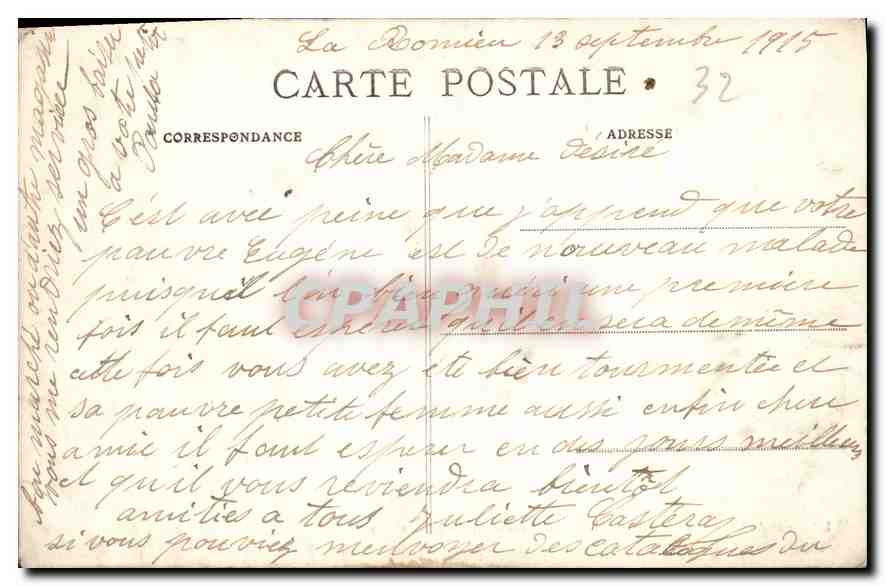 La Romieu 13 septembre 1915
CARTE POSTALE
32
CORRESPONDANCE
ADRESSE
Chère Madame Désiré
C'est avec peine que j'apprend que votre
pauvre Eugène est de nouveau malade
puisqu'il l'on bien guéri une première
fois il faut espérer qu'il en sera de même
cette fois vous avez été bien tourmentée et
sa pauvre petite femme aussi enfin chere
amie il faut esperer en des jours meilleurs
et qu'il vous reviendra bientôt
amitiés a tous Juliette Casteras
si vous pouviez m'envoyer des catalogues du
bon marché ou d'autre magasin
vous me rendriez service
un gros baiser
a votre petite
CPAPHIL